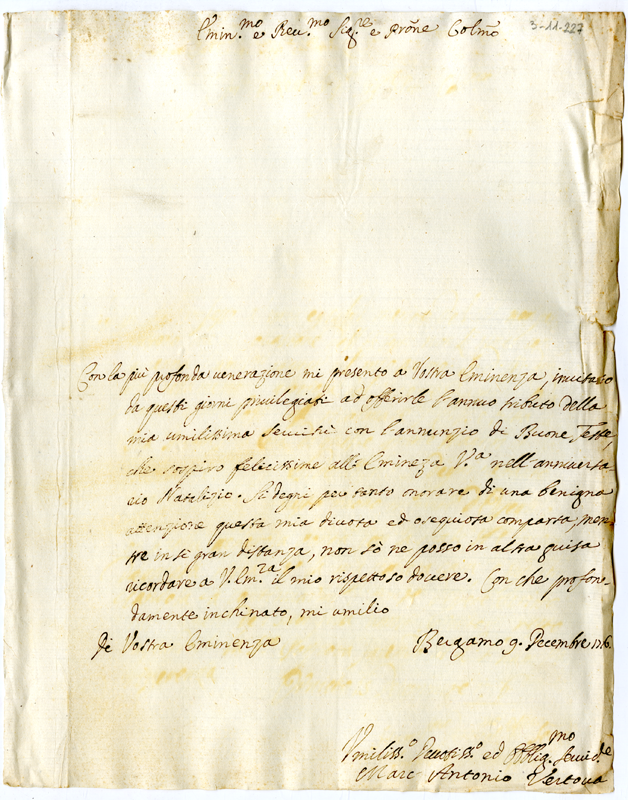 Emin.mo e Reu.mo Sig.re e Prōne Colmo
3-11-227
Con la più profonda uenerazione mi presento a Vostra Eminenza, inuitato
da questi giorni priuilegiati ad offerirle l'annuo tributo della
mia umilissima seruitù con l'annunzio di Buone Feste,
che sospiro felicissime all'Eminēza V.a nell'anniuersa
rio Natalizio. Si degni per tanto onorare di una benigna
attenzione questa mia diuota ed osequiosa comparsa, men
tre in sì gran distanza, non sò ne posso in altra guisa
ricordare a V. Em.za il mio rispettoso douere. Con che profon-
damente inchinato, mi umilio
Di Vostra Eminenza
Bergamo 9. Decembre
Vmiliss.o Deuotiss.o ed Obblig.mo Seruid.e
Marc Antonio Vertoua